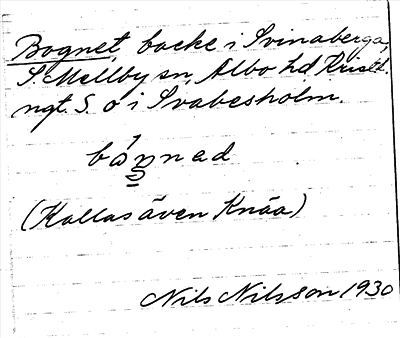 Bognet, backe i Svinaberga,
S. Mellby sn, Albo hd. Krist.
ngt. S. o i Svabesholm.
(Kallas även Knäa)
Nils Nilsson 1930